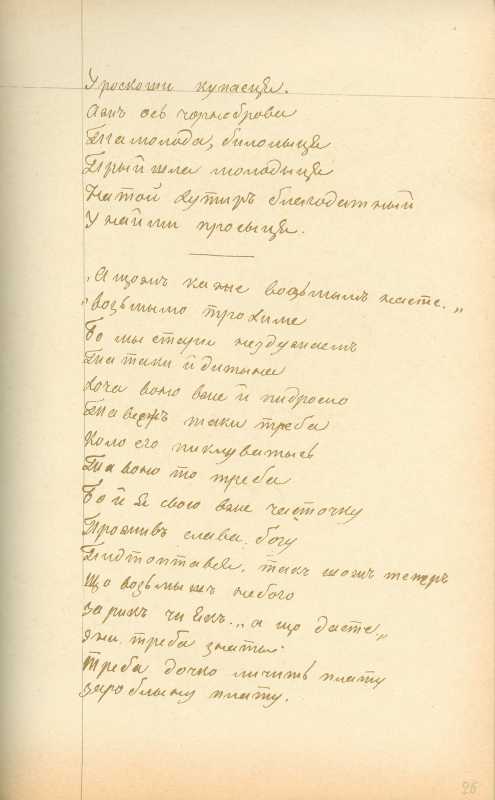 У роскоши купаеця.
Ажъ ось чорноброва
Та молода, билолыця
Прыйшла молодыця
На той хутиръ благодатный
У наймы просыця.
„А щожъ каже возьмымъ насте.„
„возьмымо трохиме
Бо мы стари нездужаемъ
Та таки й дытына
Хоча воно вже й пидросло
Та всежъ таки треба
Коло его пиклуватысь
Та воно то треба
Бо й я свою вже часточку
Проживъ слава богу
Пидтоптався, такъ щожъ теперъ
Що возьмышъ небого
за рикъ чи якъ.„ а що дасте„
э ни треба знаты.
Треба дочко личить плату
зароблыну плату.
26